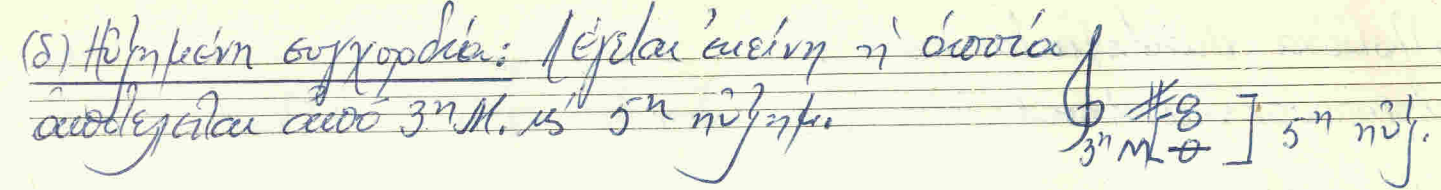 (δ) Ηὐξημένη συγχορδία: Λέγεται ἐκείνη ἡ ὁποία
ἀποτελεῖται ἀπό 3ην Μ. κ 5ην ηὐξημ.
3η Μ [ ] 5η ηὐξ.